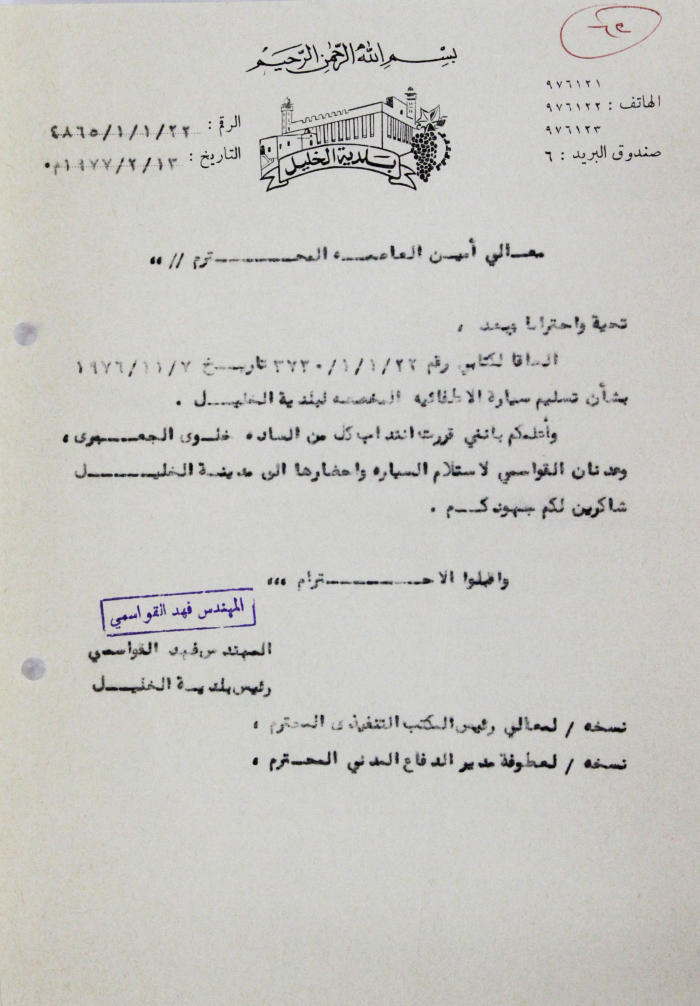 ٦٥
بسم الله الرحمن الرحيم
الهاتف : ٩٧٦١٢١
٩٧٦١٢٢
٩٧٦١٢٣
صندوق البريد : ٦
بلدية الخليل
الرقم : ٤٨٦٥/١/١/٢٢
التاريخ : ١٩٧٧/٢/١٣م٠
معـالي أميـن العاصمـه المحـــــترم // ،،
تحية واحتراما وبعد ،
الحاقا لكتابي رقم ٣٧٣٠/١/١/٢٢ تاريــخ ١٩٧٦/١١/٧
بشأن تسليم سيارة الاطفائيه المخصصه لبلدية الخليــل .
وأعلمكم بانني قررت انتداب كل من الساده خلـوى الجعـبـرى ،
وعدنان القواسمي لاستلام السياره واحضارها الى مدينـة الخليـــل
شاكرين لكم جهودكـــم .
واقبلوا الاحـــــــترام ،،،
المهندس فهد القواسمي
المهندس فهد القواسمي
رئيس بلديـة الخليــل
نسخه / لمعالي رئيس المكتب التنفيذى المحترم ،
نسخه / لعطوفة مدير الدفاع المدني المحـترم ،